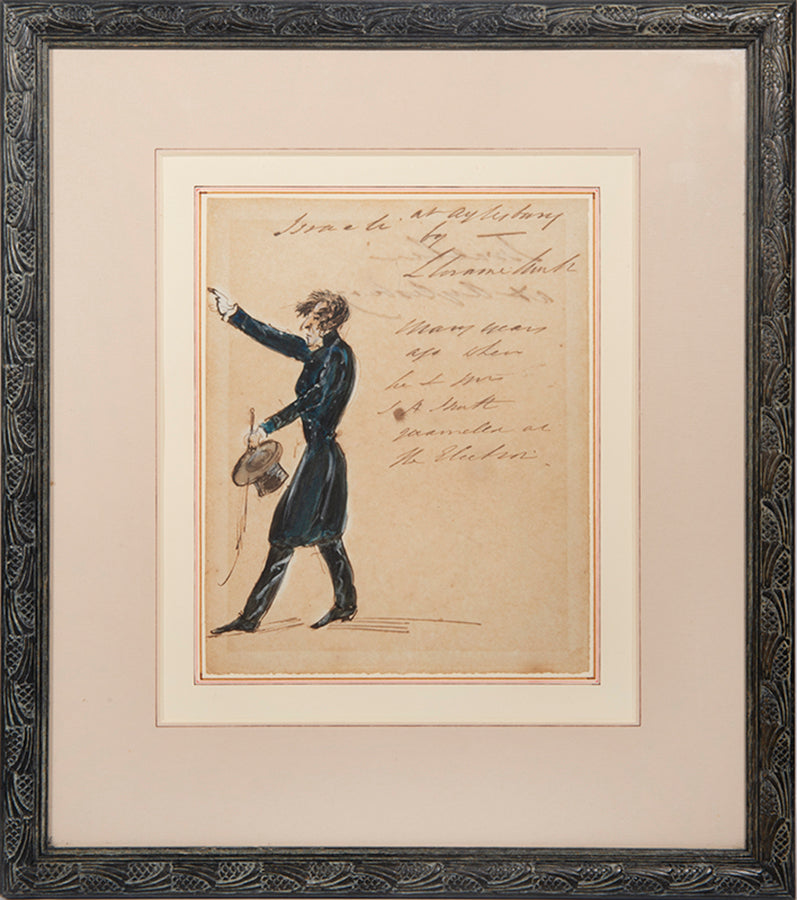 Israeli at Aylesbury
by
Many years
ago when
he & Mrs
S A Smith
quarrelled at
the Election.